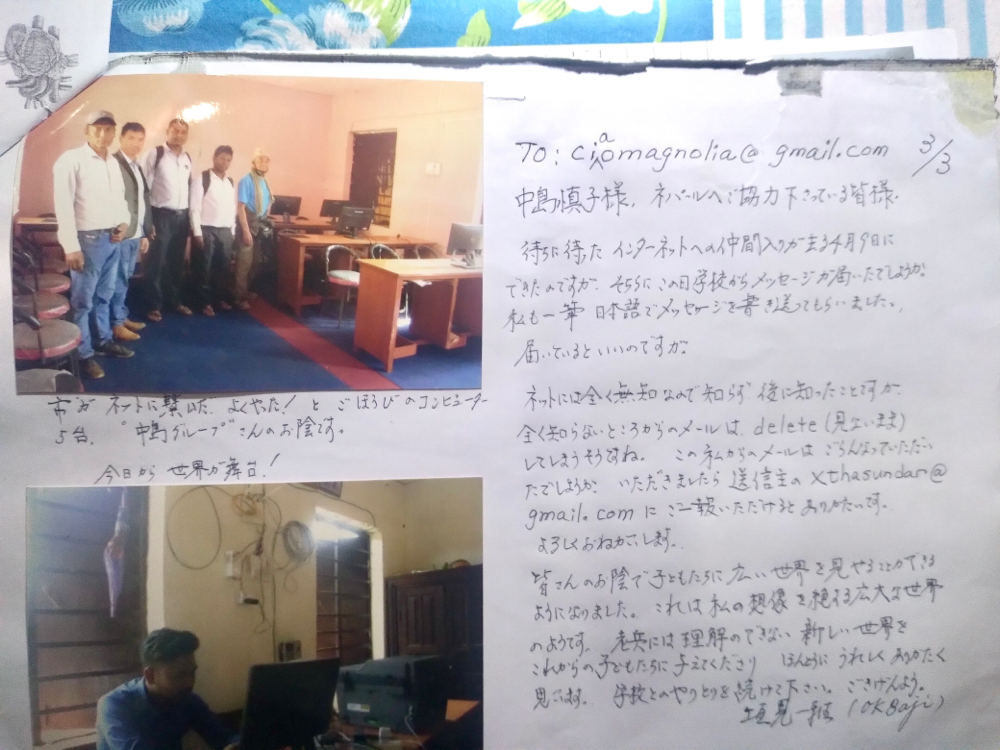 市がネットに繋いだ、よくやった！とごほうびのコンピューター
5台。"中島グループ"さんのお陰です。
今日から世界が舞台！
To: ciaomagnolia@gmail.com 3/3
中島慎子様、ネパールへご協力下さっている皆様。
待ちに待った インターネットへの仲間入りが去る4月9日に
できたのですが、そちらにこの日学校からメッセージが届いたでしょうか？
私も一筆 日本語でメッセージを書き送ってもらいました。
届いているといいのですが。
ネットには全く無知なので知らず 後に知ったことですが
全く知らないところからのメールは、delete (見ないまま)
してしまうそうですね。この私からのメールは ごらんなっていただい
たでしょうか？ いただきましたら 送信主の xthasundar@
gmail.com に ご一報いただけるとありがたいです。
よろしくおねがいします。
皆さんのお陰で子どもたちに 広い世界を見やることができる
ようになりました。これは私の想像を絶する広大な世界
のようです。老兵には理解のできない 新しい世界を
これからの子どもたちに与えてくださり ほんとうに うれしく ありがたく
思います。学校とのやりとりを続けて下さい。ごきげんよう。
垣見一雅 (OKBaji)